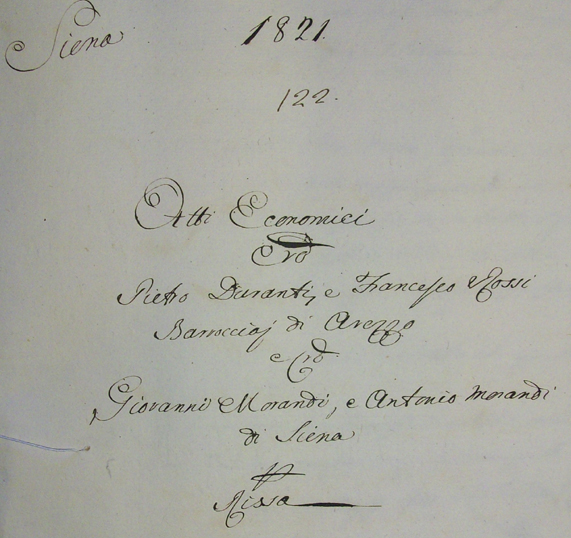 Siena
1821.
122.
Atti Economici
Crõ
Pietro Duranti, e Francesco Rossi
Barocciaj di Arezzo
e Crõ
Giovanni Morandi, e Antonio Morandi
di Siena
Rissa